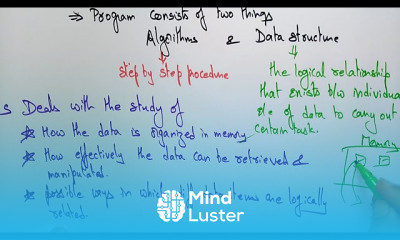 ⇒ Program Consists of two things
Algorithms & Data Structure
step by step procedure
the logical relationship
that exists b/w individual
of data to carry out
certain task.
Memory
s Deals with the study of
How the data is organized in memory
How effectively the data can be retrieved &
manipulated.
possible ways in which data items are logically
related.
Mind
Luster